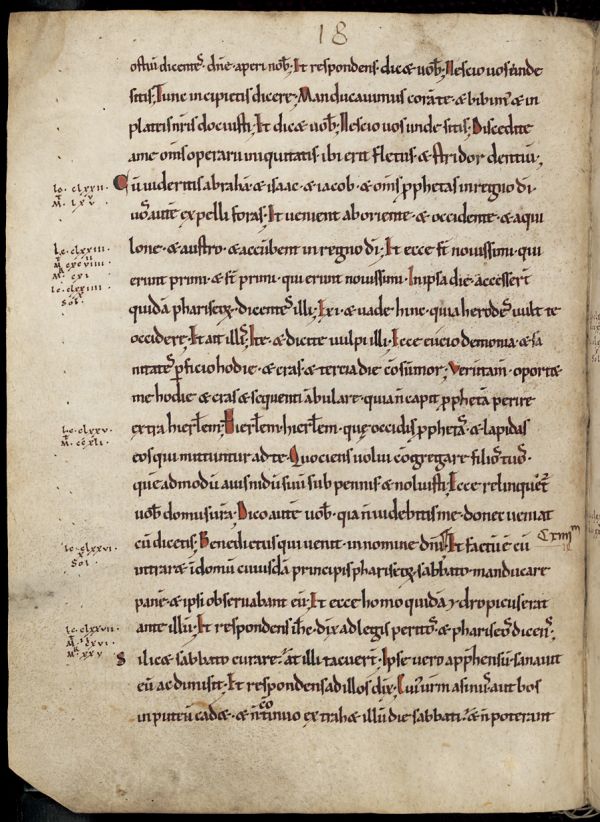 18
ostiū dicentes· dn̄e aperi nob̄; Et respondens· dic& uob̄; Nescio uos unde
sitis; Tunc incipietis dicere; Manducauimus corā te· & bibim' & in
plateis nr̄is docuisti; Et dic& uob̄; Nescio uos unde sitis; Discedite
a me om̄s operarii iniquitatis· ibi erit fletus & stridor dentiū;
Cū uideritis abrahā· & isaac· & iacob· & om̄s ꝓphetas in regno dī·
uos autē expelli foras; Et uenient ab oriente· & occidente· & aqui
lone· & austro· & accūbent in regno dī; Et ecce sт̄ nouissimi· qui
erunt primi· & sт̄ primi· qui erunt nouissimi· In ipsa die· accesserт̄
quidā phariseoꝝ· dicentes illi; Exi· & uade hinc· quia herodes uult te
occidere; Et ait illis; Ite· & dicite uulpi illi; Ecce eiicio demonia· & sa
nitates ꝑficio hodie· & cras· & tercia die cōsumor; Verūtam̄· oport&
me hodie· & cras· & sequenti ābulare· quia n̄ capit ꝓphetā perire
extra hierłem; Hierłem· hierłem· que occidis ꝓphetas· & lapidas
eos qui mittuntur ad te· Quociens uolui cōgregare filios tuos·
quēadmodū auis nidū suū sub pennis· & noluisti; Ecce relinquet̄
uob̄ domus ur̄a; Dico autē uob̄· quia n̄ uidebitis me· donec ueniat
cū dicetis; Benedictus qui uenit in nomine dn̄i; Et factū ē cū
Cxiiii
intrar& in domū cuiusdā principis phariseoꝝ· sabbato· manducare
panē· & ipsi obseruabant eū; Et ecce homo quidā ydropicus erat
ante illū; Et respondens ih̄c· dix̄ ad legis peritos· & phariseos dicens;
Si lic& sabbato curare; at illi tacuerт̄; Ipse uero appħensū· sanauit
eū ac dimisit· Et respondens ad illos dix̄; Cui' ur̄m asinus· aut bos
in puteū cad&· & n̄ cōtinuo extrah& illū die sabbati; & n̄ poterant
lc· clxxii·
M· lxv
lc· clxxiii
lc· clxxiiii
Sol·
lc· clxxv·
M· ccxli·
lc· clxxvi·
Sol
lc· clxxvii·